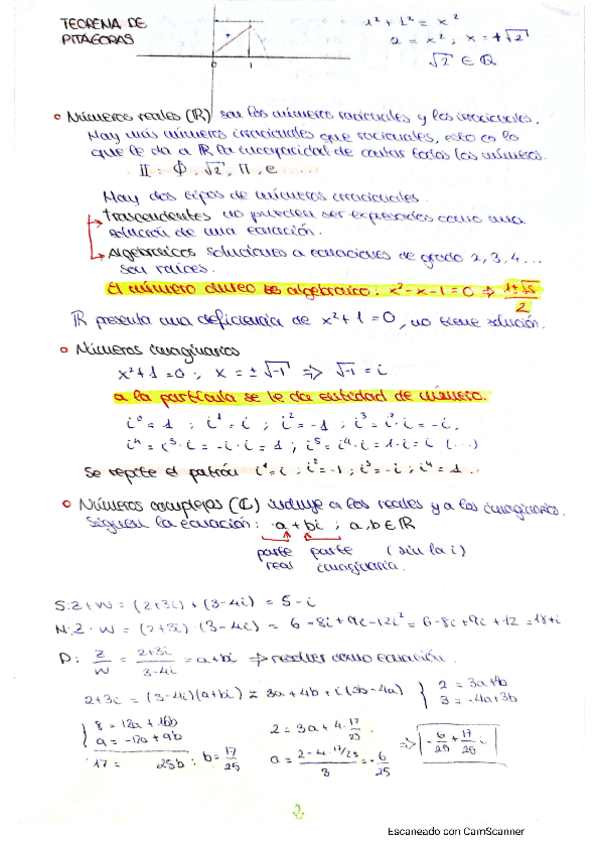 TEOREMA DE
PITÁGORAS
x
0 1
1² + 1² = x²
2 = x² ; x = ±√2
√2 ∈ Q
• Números reales (ℝ) son los números racionales y los irracionales.
Hay más números irracionales que racionales, esto es lo
que le da a ℝ la incapacidad de contar todos los números.
II: Φ, √2, Π, e ...
Hay dos tipos de números irracionales.
trascendentes no pueden ser expresados como una
solución de una ecuación.
Algebraicos soluciones a ecuaciones de grado 2, 3, 4...
son raíces.
El número áureo es algebraico: x² - x - 1 = 0 ⇒ 1±√5/2
ℝ presenta una deficiencia de x² + 1 = 0, no tiene solución.
• Números imaginarios
x² + 1 = 0 ; x = ±√-1 ⇒ √-1 = i
a la partícula se le da entidad de número.
i⁰ = 1 ; i¹ = i ; i² = -1 ; i³ = i²·i = -i,
i⁴ = i³·i = -i·i = 1 ; i⁵ = i⁴·i = 1·i = i (...)
Se repite el patrón i¹ = i ; i² = -1 ; i³ = -i ; i⁴ = 1.
• Números complejos (ℂ) incluye a los reales y a los imaginarios.
Siguen la ecuación: a + bi ; a, b ∈ ℝ
parte parte (sin la i)
real imaginaria.
S: z + w = (2+3i) + (3-4i) = 5 - i
N: z · w = (2+3i) · (3-4i) = 6 - 8i + 9i - 12i² = 6 - 8i + 9i + 12 = 18 + i
D: z/w = 2+3i/3-4i = a + bi ⇒ resolver como ecuación.
2+3i = (3-4i)(a+bi) = 3a + 4b + i(3b-4a) { 2 = 3a+4b
3 = -4a+3b
{ 8 = 12a + 16b
9 = -12a + 9b
17 = 25b ; b = 17/25
2 = 3a + 4·17/25
a = 2-4·17/25/3 = -6/25
⇒ -6/25 + 17/25 i
Escaneado con CamScanner